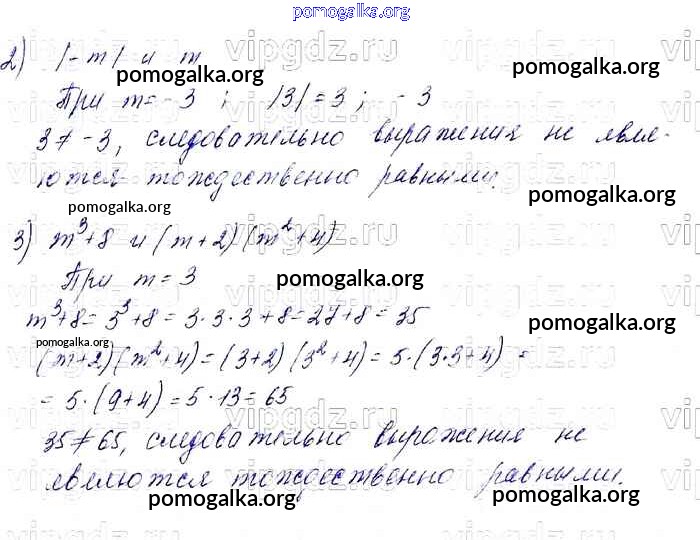 pomogalka.org
2) |-m| и m
pomogalka.org pomogalka.org
При m=-3 ; |3|=3 ; -3
3≠-3, следовательно выражения не явля-
ются тождественно равными.
pomogalka.org pomogalka.org
3) m³+8 и (m+2)(m²+4)
При m=3
pomogalka.org
m³+8=3³+8=3·3·3+8=27+8=35
pomogalka.org pomogalka.org
(m+2)(m²+4)=(3+2)(3²+4)=5·(3·3+4)=
=5·(9+4)=5·13=65
35≠65, следовательно выражения не
являются тождественно равными.
pomogalka.org pomogalka.org